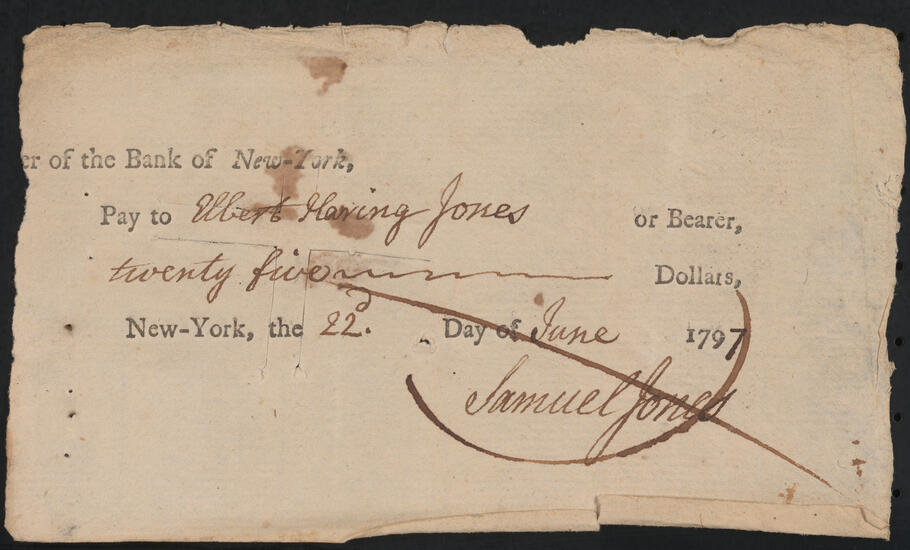 er of the Bank of New-York,
Pay to Elbert Haring Jones or Bearer,
twenty five Dollars,
New-York, the 22d. Day of June 1797
Samuel Jones